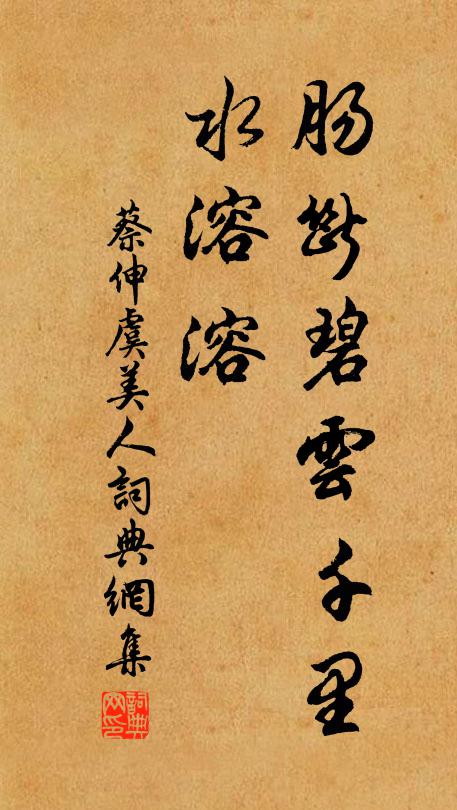 腸斷碧雲千里
水溶溶
蔡伸虞美人詞典網集
詞典网印